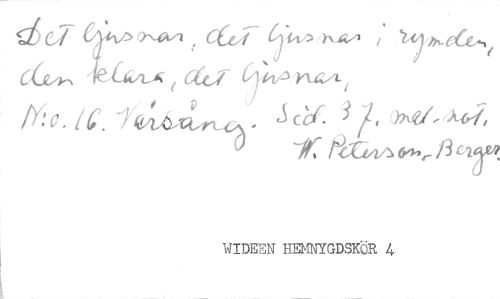 Det ljusnar, det ljusnar i rymden,
den klara, det ljusnar,
N:o. 16. Vårsång. Sid. 37. mel. not.
W. Peterson-Berger.
WIDEEN HEMNYGDSKÖR 4